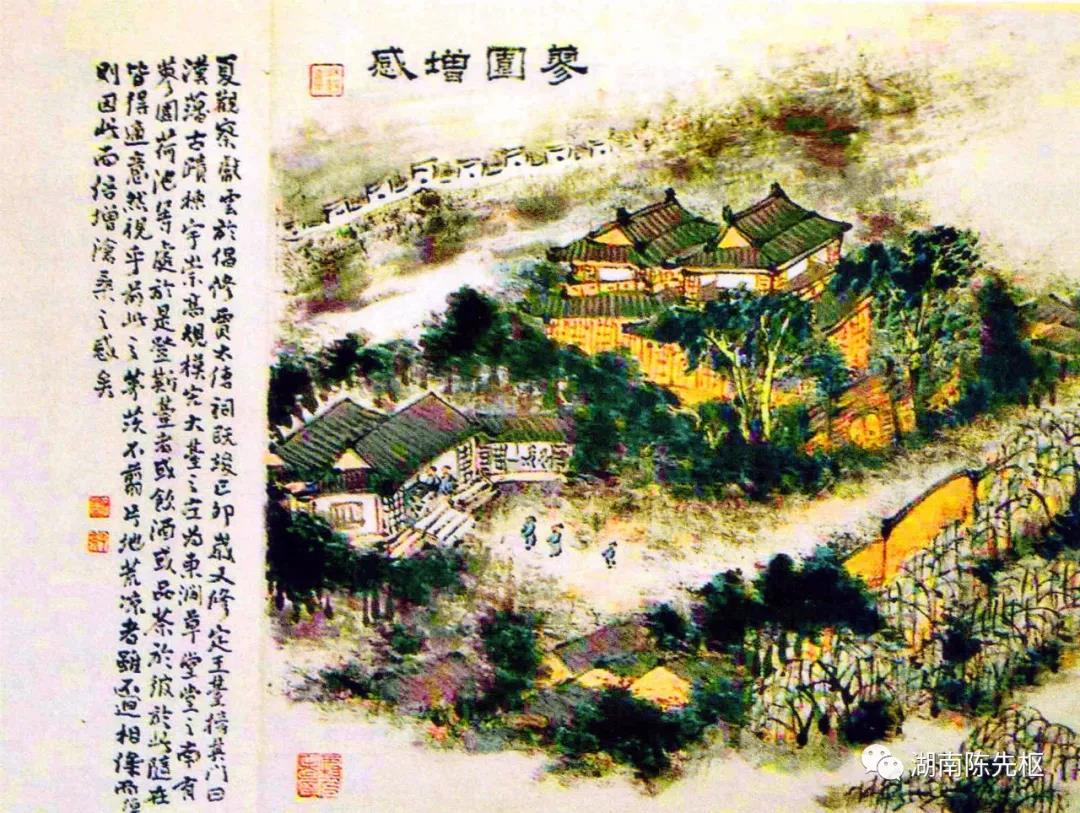 蓼園增感
夏觀察獻雲於倡修賈太傅祠既竣己卯歲又修定王臺榜其門曰
漢藩古蹟棟宇崇高規模宏大臺之左為東澗草堂堂之南有
蓼園荷池等處於是登斯臺者或飲酒或品茶於彼於此隨在
皆得適意然視乎前此之茅茨不翦片地荒涼者雖不迴相而
則因此而倍增滄桑之感矣
湖南陈先枢